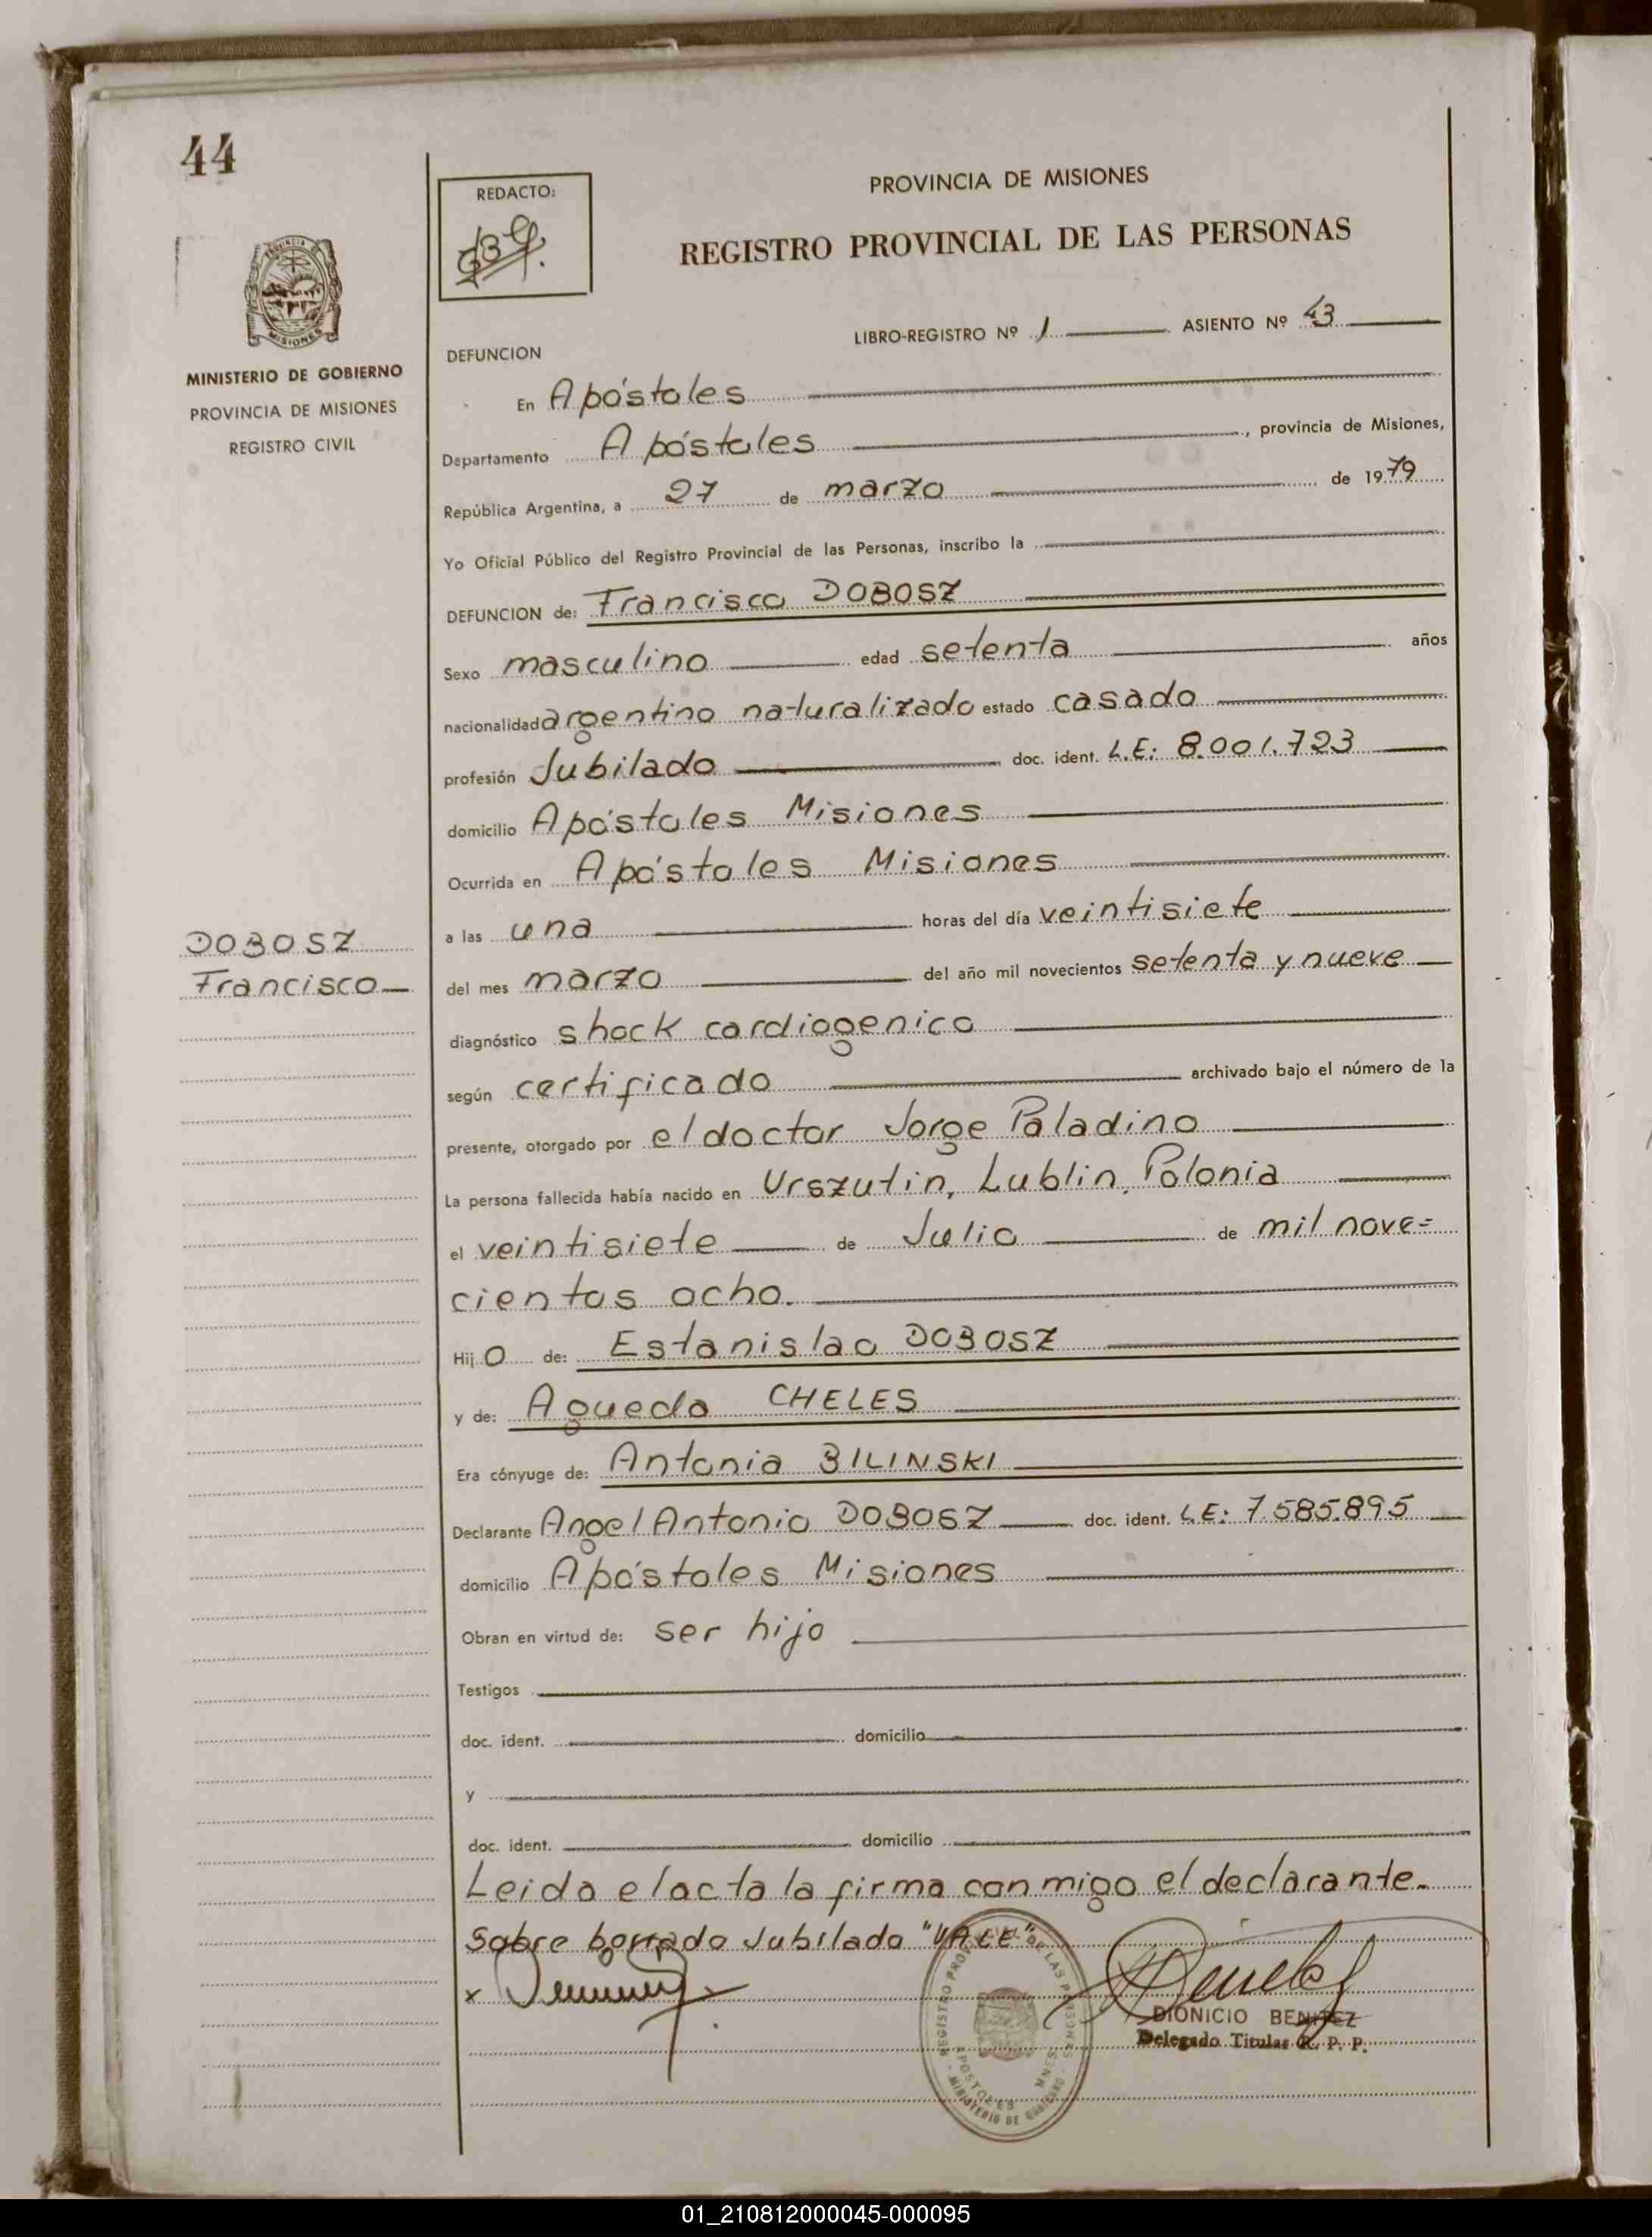 44
REDACTO:
PROVINCIA DE MISIONES
REGISTRO PROVINCIAL DE LAS PERSONAS
MINISTERIO DE GOBIERNO
PROVINCIA DE MISIONES
REGISTRO CIVIL
LIBRO-REGISTRO Nº 1 ASIENTO Nº 43
DEFUNCION
En Apóstoles
Departamento Apóstoles, provincia de Misiones,
República Argentina, a 27 de marzo de 1979
Yo Oficial Público del Registro Provincial de las Personas, inscribo la
DEFUNCION de: Francisco DOBOSZ
Sexo masculino edad setenta años
nacionalidad argentino naturalizado estado casado
profesión Jubilado doc. ident. L.E: 8.001.723
domicilio Apóstoles Misiones
Ocurrida en Apóstoles Misiones
a las una horas del día veintisiete
DOBOSZ
Francisco
del mes marzo del año mil novecientos setenta y nueve
diagnóstico shock cardiogenico
según certificado archivado bajo el número de la
presente, otorgado por el doctor Jorge Paladino
La persona fallecida había nacido en Urszutin, Lublin, Polonia
el veintisiete de Julio de mil nove=
cientos ocho.
Hijo de: Estanislao DOBOSZ
y de: Agueda CHELES
Era cónyuge de: Antonia BILINSKI
Declarante Angel Antonio DOBOSZ doc. ident. L.E: 7.585.895
domicilio Apóstoles Misiones
Obran en virtud de: ser hijo
Testigos
doc. ident. domicilio
y
doc. ident. domicilio
Leida el acta la firma conmigo el declarante.
Sobre borrado Jubilado "VALE"
x
DIONICIO BENITEZ
Delegado Titular R. P. P.
REGISTRO PROVINCIAL DE LAS PERSONAS
APOSTOLES MNES
MINISTERIO DE GOBIERNO
01_210812000045-000095